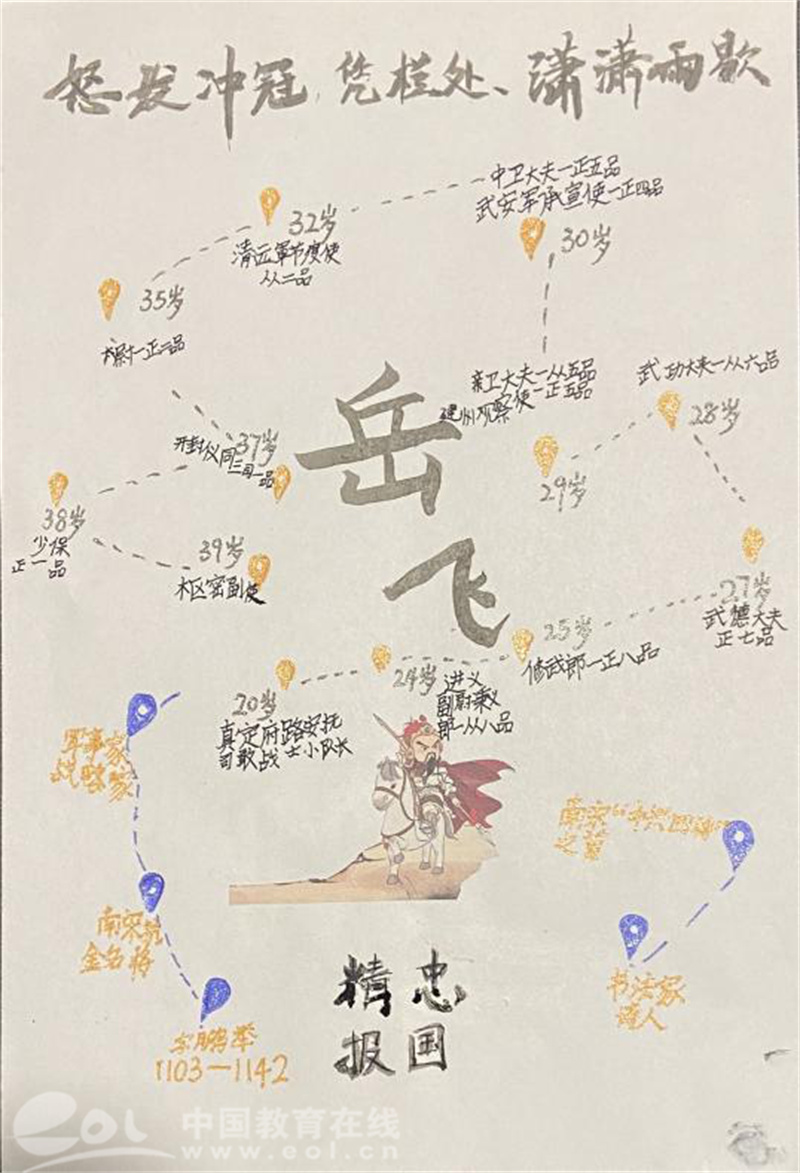 怒发冲冠,凭栏处、潇潇雨歇
中卫大夫一正五品
武安军承宣使一正四品
32岁
清远军节度使
从二品
30岁
35岁
太尉一正二品
亲卫大夫一从五品
建州观察使一正五品
武功大夫一从六品
28岁
岳飞
37岁
开封仪同
三司一品
29岁
38岁
少保
正一品
39岁
枢密副使
27岁
武德大夫
正七品
25岁
修武郎一正八品
24岁
进义
副尉秉义
郎一从八品
20岁
真定府路安抚
司敢战士小队长
军事家
战略家
南宋"中兴四将"
之首
南宋抗
金名将
书法家
诗人
字鹏举
1103—1142
精忠
报国
eol 中国教育在线
www.eol.cn